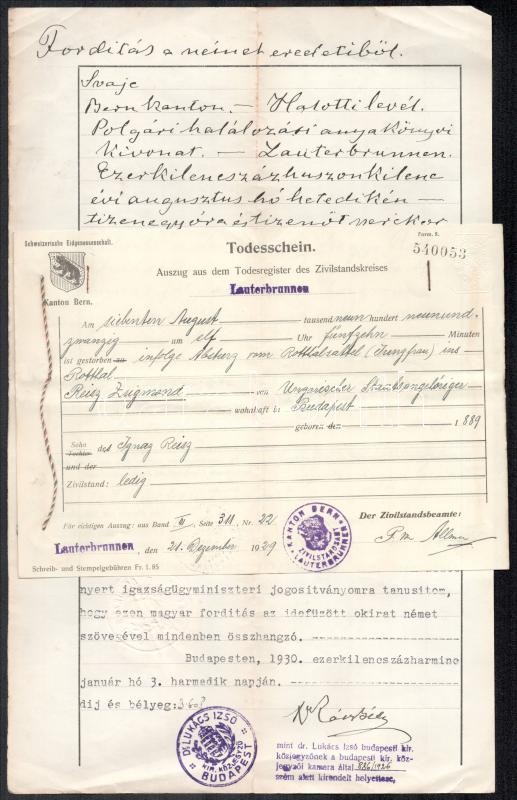 Fordítás a német eredetiből.
Svájc
Bern kanton. — Halotti levél.
Polgári halálozási anyakönyvi
kivonat. — Lauterbrunnen.
Ezerkilencszázhuszonkilenc
évi augusztus hó hetedikén —
tizenegy óra és tizenöt perckor
Schweizerische Eidgenossenschaft.
Form. 8.
Todesschein.
540053
Auszug aus dem Todesregister des Zivilstandskreises
Lauterbrunnen
Kanton Bern.
Am siebenten August tausend neun hundert neunund-
zwanzig um elf Uhr fünfzehn Minuten
ist gestorben zu infolge Absturz vom Rottalsattel (Jungfrau) ins
Rottal
Reisz Zsigmond von Ungarischer Staatsangehöriger
wohnhaft in Budapest
geboren den 1889
Sohn des Ignaz Reisz
Tochter
und der
Zivilstand: ledig
Für richtigen Auszug: aus Band II, Seite 311, Nr. 22
Der Zivilstandsbeamte:
Lauterbrunnen, den 21. Dezember 1929
KANTON BERN
ZIVILSTANDSAMT
LAUTERBRUNNEN
Schreib- und Stempelgebühren Fr. 1.85
nyert igazságügyminiszteri jogosítványomra tanusítom,
hogy ezen magyar fordítás az idefűzött okirat német
szövegével mindenben összhangzó.
Budapesten, 1930. ezerkilencszázharminc
január hó 3. harmadik napján.
díj és bélyeg:
Dr. LUKÁCS IZSÓ
KIR. KÖZJEGYZŐ
BUDAPEST
mint dr. Lukács Izsó budapesti kir.
közjegyzőnek a budapesti kir. köz-
jegyzői kamara által 886/1926
szám alatt kirendelt helyettese.